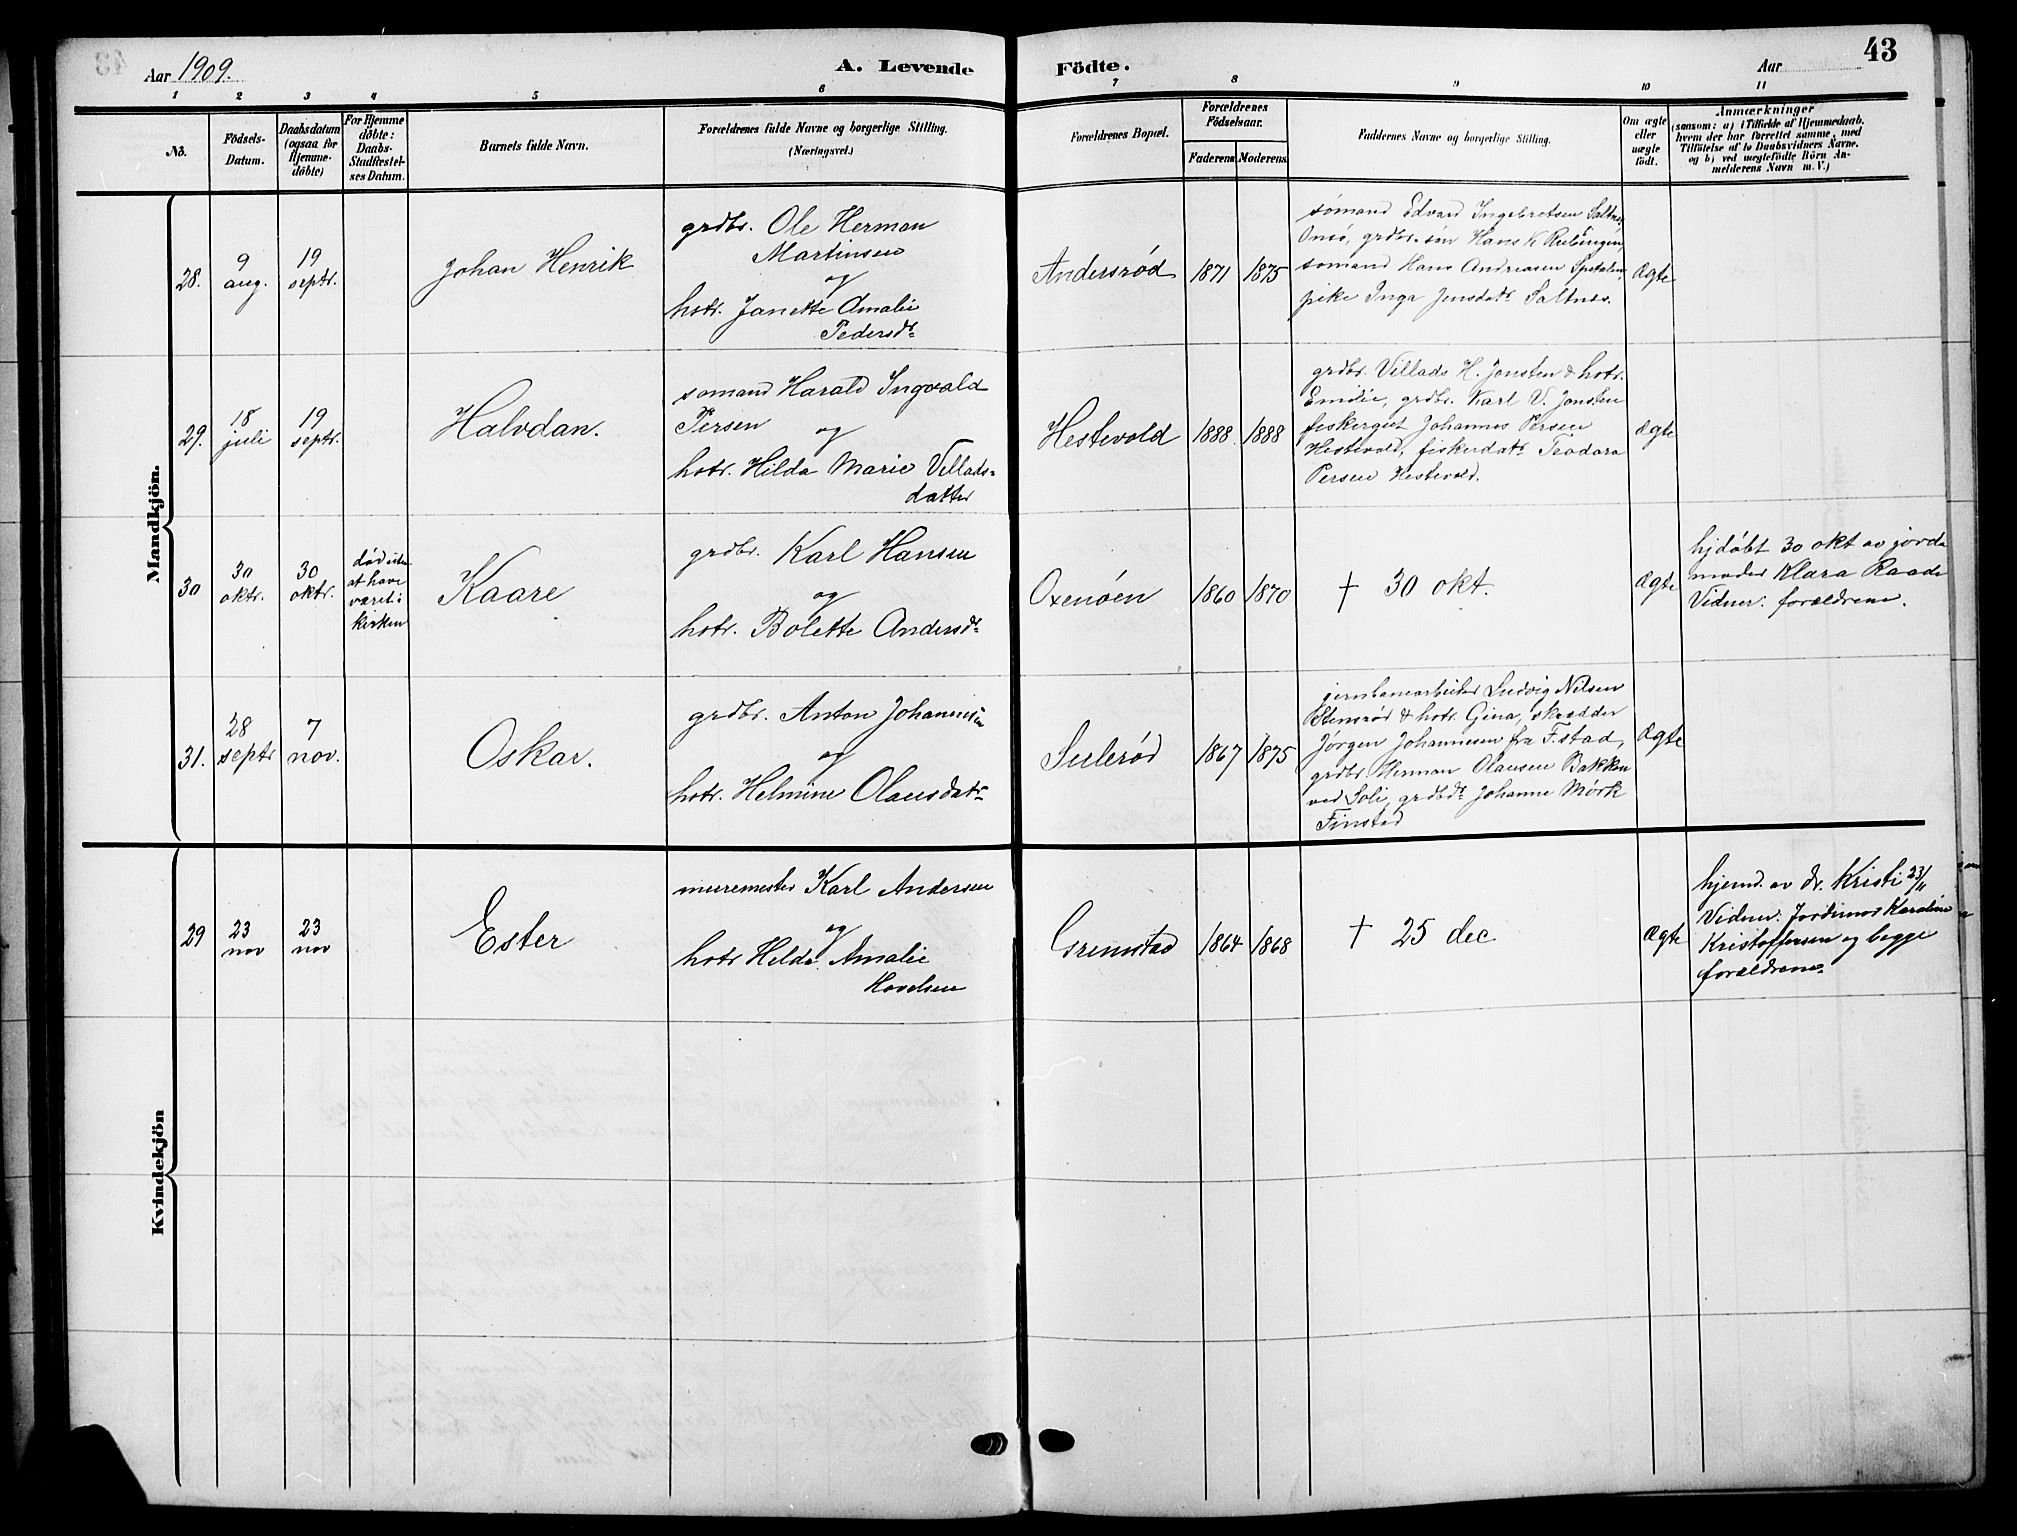 Aar 1909.
A. Levende
Födte.
Aar
43
1 2 3 4 5 6 7 8 9 10 11
No.
Födsels-
Datum.
Daabsdatum
(ogsaa for
Hjemme-
döbte)
For Hjemme
döbte:
Daabs-
Stadfæstel-
ses Datum.
Barnets fulde Navn.
Forældrenes fulde Navne og borgerlige Stilling.
(Næringsvei.)
Forældrenes Bopæl.
Forældrenes
Födselsaar.
Faderens
Moderens
Faddernes Navne og borgerlige Stilling.
Om ægte
eller
uægte
födt.
Anmærkninger
(saasom: a) i Tilfælde af Hjemmedaab,
hvem der har forrettet samme, med
Tilföielse af to Daabsvidners Navne.
og b) ved uægtefödte Börn An-
melderens Navn m. V.)
Mandkjön.
28.
9
aug.
19
septr.
Johan Henrik
grdbr. Ole Herman
Martinsen
og
hstr. Janette Amalie
Pedersdr
Andersrød
1871
1875
sømand Edvard Ingebretsen Saltnes,
Onsø, grdbr. søn Hans K
sømand Hans Andreasen Spetalen,
pike Inga Jensdatr Saltnes.
Ægte
29.
18
juli
19
septr.
Halvdan.
sømand Harald Ingvald
Persen
og
hstr. Hilda Marie Villads-
datter
Hestevold
1888
1888
grdbr. Villads H. Jonsten & hstr.
Emilie, grdbr. Karl V. Jonsten
fiskergut Johannes Persen
Hestevold, fiskerdatr Teodora
Persen Hestevold.
Ægte
30
30
oktr.
30
oktr.
død uten
at have
været i
kirken
Kaare
grdbr. Karl Hansen
og
hstr. Bolette Andersdr
Oxenøen
1860
1870
† 30 okt.
Ægte
hjdøbt 30 okt av jorda
moder Klara Raade
Vidner: forældrene.
31.
28
septr
7
nov.
Oskar.
grdbr. Anton Johannesen
og
hstr. Helmine Olausdatr
Sulerød
1867
1875
jernbanearbeider Ludvig Nilsen
Stensrød & hstr. Gina, skrædder
Jørgen Johannesen fra F.stad,
grdbr. Herman Olausen Bakken
ved Soli, grdbdr Johanne Mørk
Finstad
Ægte
Kvindekjön
29
23
nov
23
nov
Ester
muremester Karl Andersen
og
hstr Hilda Amalie
Havelsen
Grimstad
1864
1868
† 25 dec
Ægte
hjemd. av dr. Kristi 23/11
Vidner: Jordmor Karoline
Kristoffersen og begge
forældrene